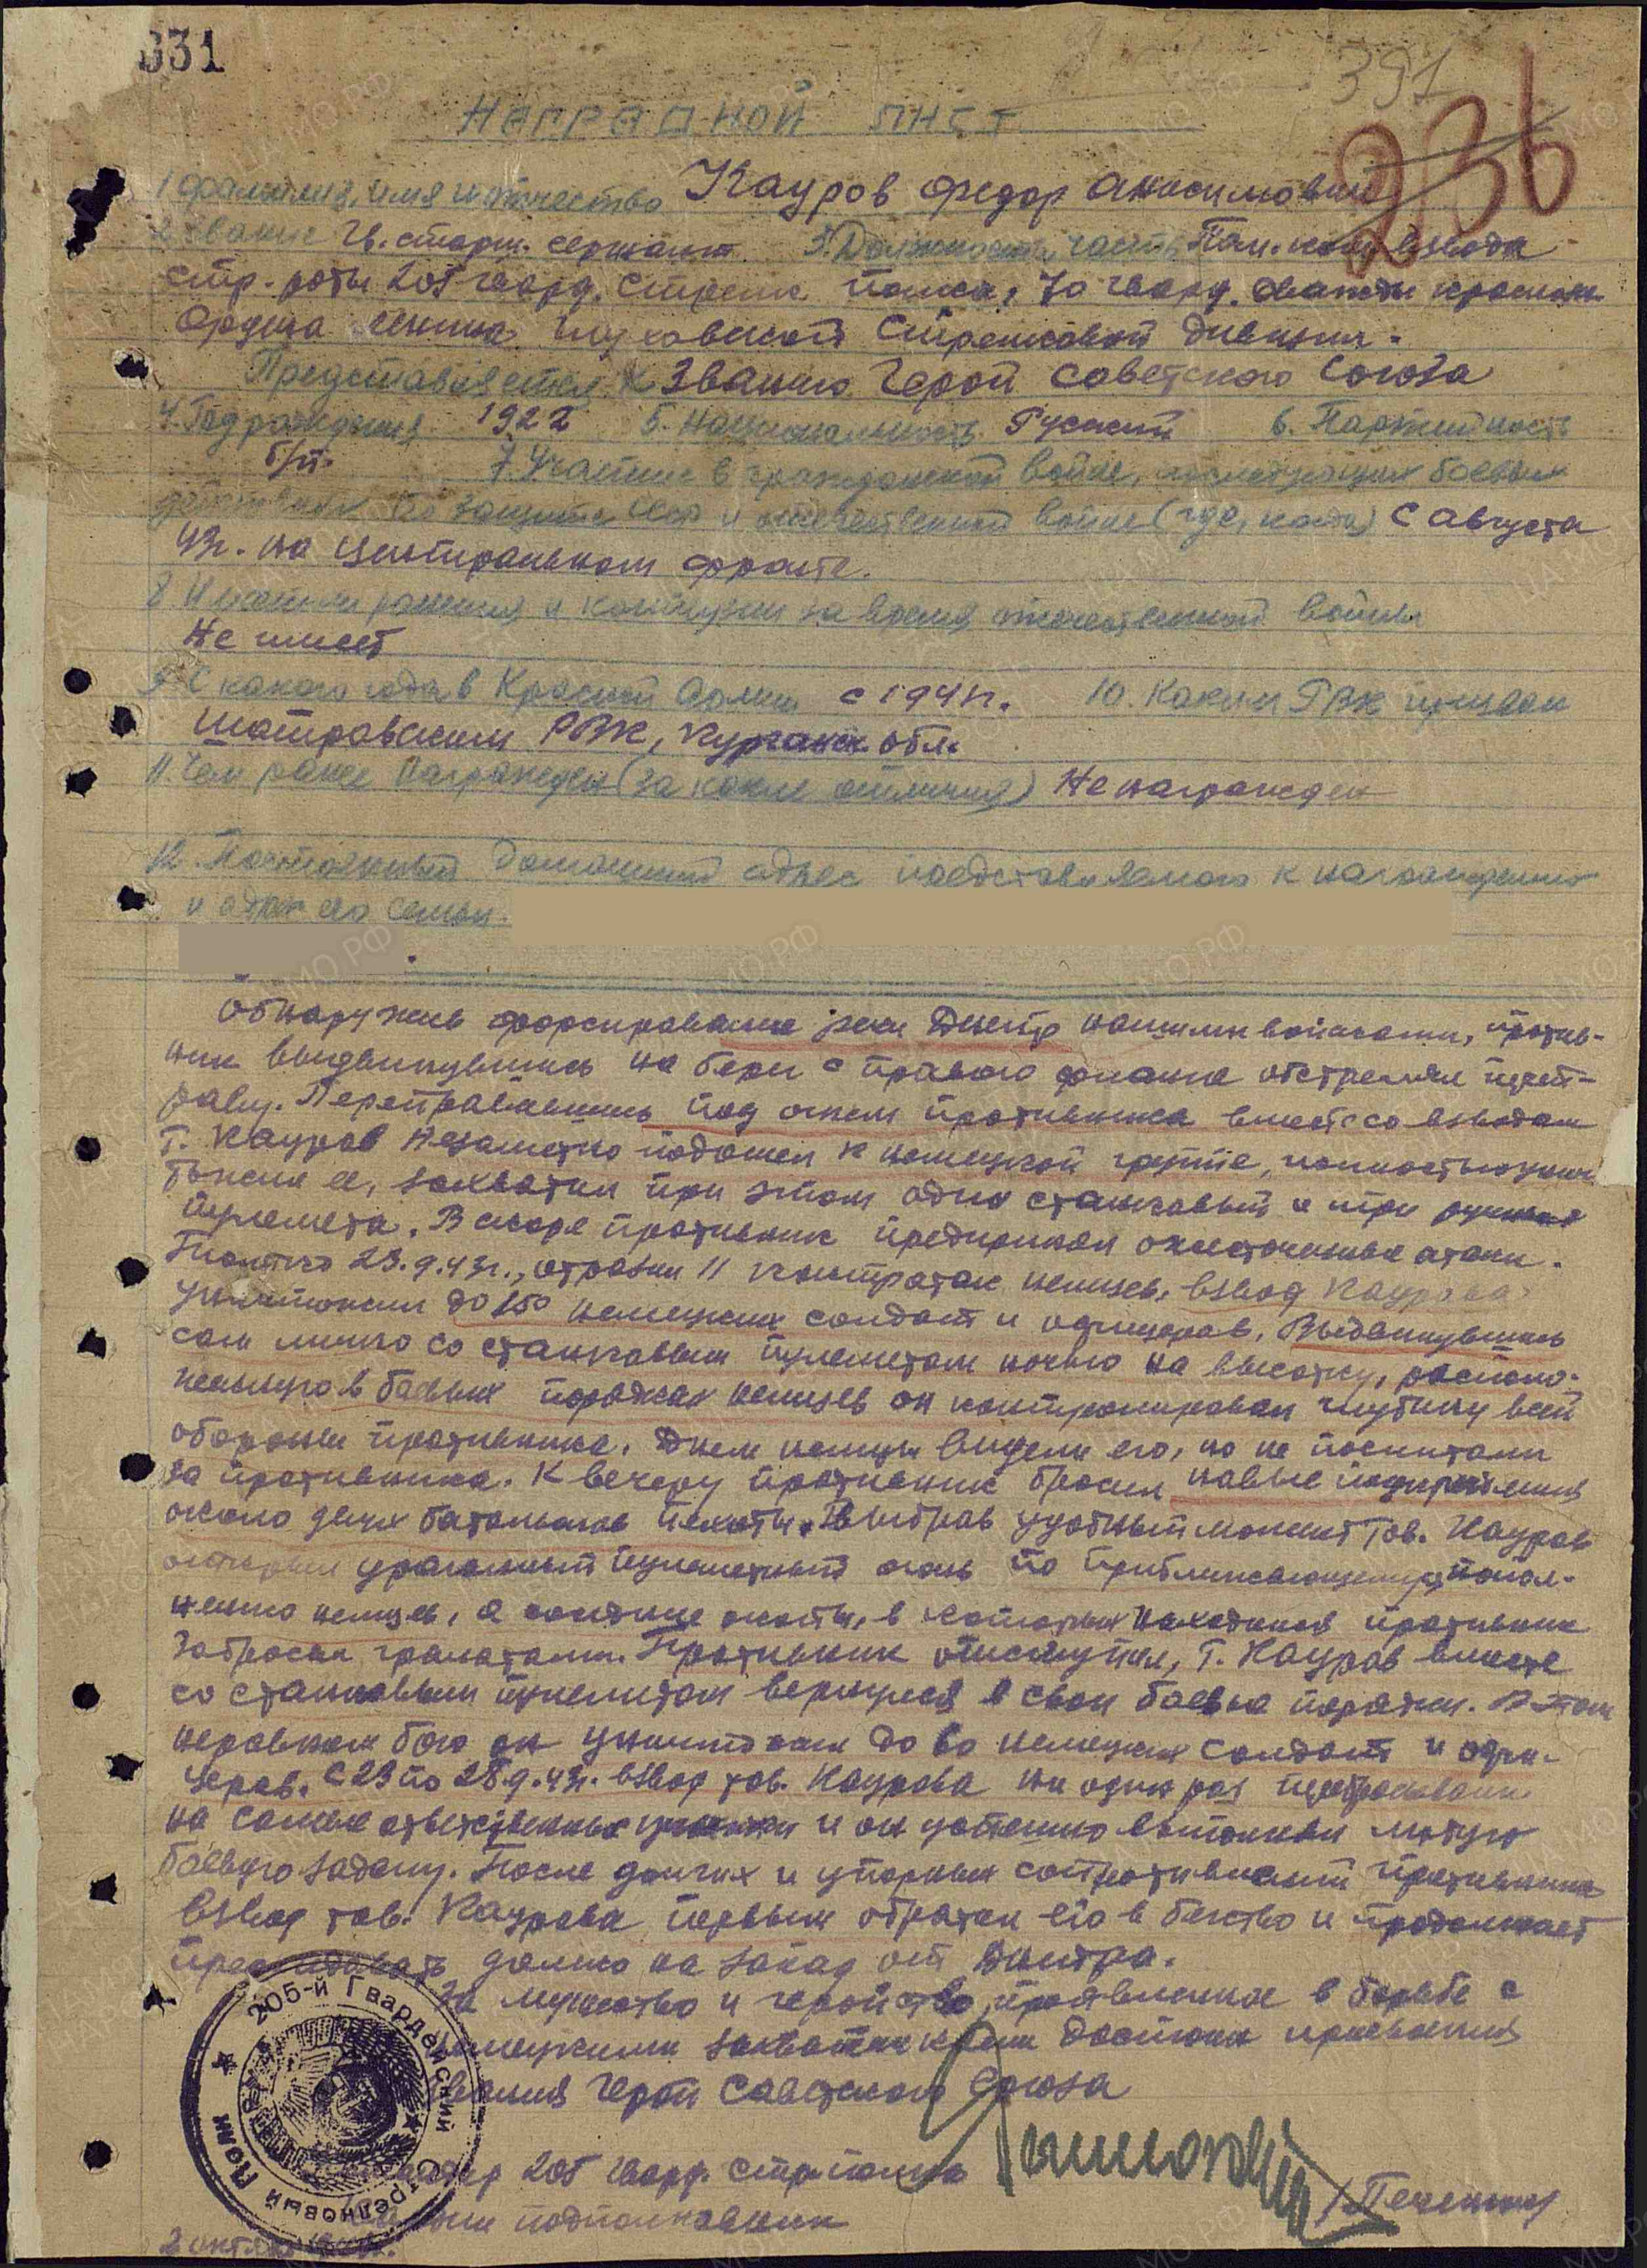 331
391
236
НАГРАДНОЙ ЛИСТ
1 фамилия, имя и отчество Кауров Федор Анисимович
2 Звание Гв. старш. сержант 3. Должность, часть Пом. ком. взвода
стр. роты 205 гвард. стрелк. полка, 70 гвард. дважды краснозн.
Ордена Ленина Глуховской Стрелковой дивизии.
Представляется к званию Герой Советского Союза
4. Год рождения 1922 5. Национальность Русский 6. Партийность
б/п. 7. Участие в гражданской войне, последующих боевых
действиях по защите СССР и отечественной войне (где, когда) С августа
43г. на Центральном фронте.
8 Имеет ли ранения и контузии за время отечественной войны
Не имеет
9. С какого года в Красной Армии с 1941г. 10. Каким РВК призван
Шатровским РВК, Курганск. обл.
11. Чем ранее награжден (за какие отличия) Не награжден
12. Постоянный домашний адрес представляемого к награждению
и адрес его семьи.
Обнаружив форсирование реки Днепр нашими войсками, против-
ник выдвинувшись на берег с правого фланга обстрелял переп-
раву. Переправившись под огнем противника вместе со взводом
т. Кауров незаметно подошел к немецкой группе, полностью унич
тожил ее, захватил при этом один станковый и три ручных
пулемета. Вскоре противник предпринял ожесточенные атаки.
Только 23.9.43г., отразив 11 контратак немцев, взвод Каурова
уничтожил до 150 немецких солдат и офицеров. Выдвинувшись
сам лично со станковым пулеметом ночью на высотку, располо-
женную в боевых порядках немцев он контролировал глубину всей
обороны противника. Днем немцы видели его, но не посчитали
за противника. К вечеру противник бросил новые подкрепления
около двух батальонов пехоты. Выбрав удобный момент тов. Кауров
открыл ураганный пулеметный огонь по приближающемуся попол-
нению немцев, а ближние окопы, в которых находился противник
забросал гранатами. Противник отступил, т. Кауров вместе
со станковым пулеметом вернулся в свои боевые порядки. В этом
неравном бою он уничтожил до 60 немецких солдат и офи-
церов. С 23 по 28.9.43г. взвод тов. Каурова ни один раз перебрасывали
на самые ответственные участки и он успешно выполнял любую
боевую задачу. После долгих и упорных сопротивлений противника
взвод тов. Каурова первым обратил его в бегство и продолжает
преследовать далеко на запад от Днепра.
За мужество и геройство, проявленное в борьбе с
немецкими захватчиками достоин присвоения
звания Герой Советского Союза
205 гвард. стр. полка
подполковник /Печенюк/
2 октября
205-й Гвардейский Стрелковый Полк